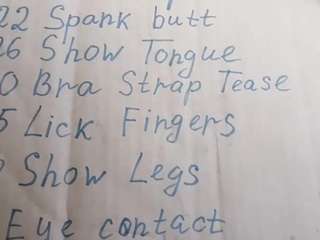 22 Spank butt
26 Show Tongue
0 Bra Strap Tease
5 Lick Fingers
Show Legs
Eye contact